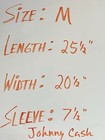 Size: M
Length: 25½"
Width: 20½"
Sleeve: 7½"
Johnny Cash